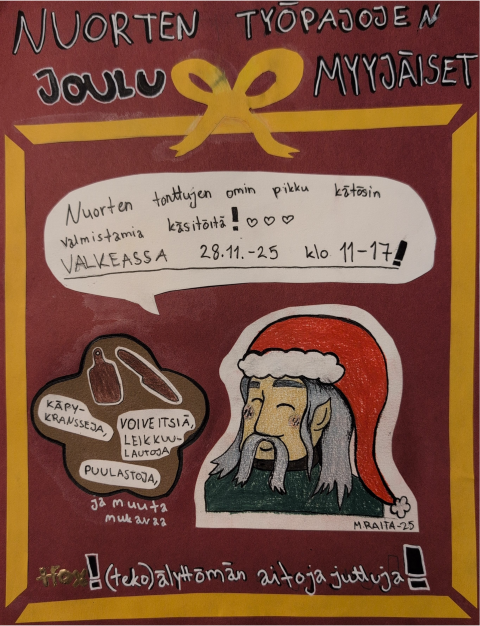 NUORTEN TYÖPAJOJEN
JOULU MYYJÄISET
Nuorten tonttujen omin pikku kätösin
valmistamia käsitöitä! ♡♡♡
VALKEASSA 28.11.-25 klo 11-17!
KÄPY-
KRANSSEJA,
VOIVEITSIÄ,
LEIKKUU-
LAUTOJA
PUULASTOJA,
ja muuta
mukavaa
M.RAITA-25
HOX! (teko)älyttömän aitoja juttuja!